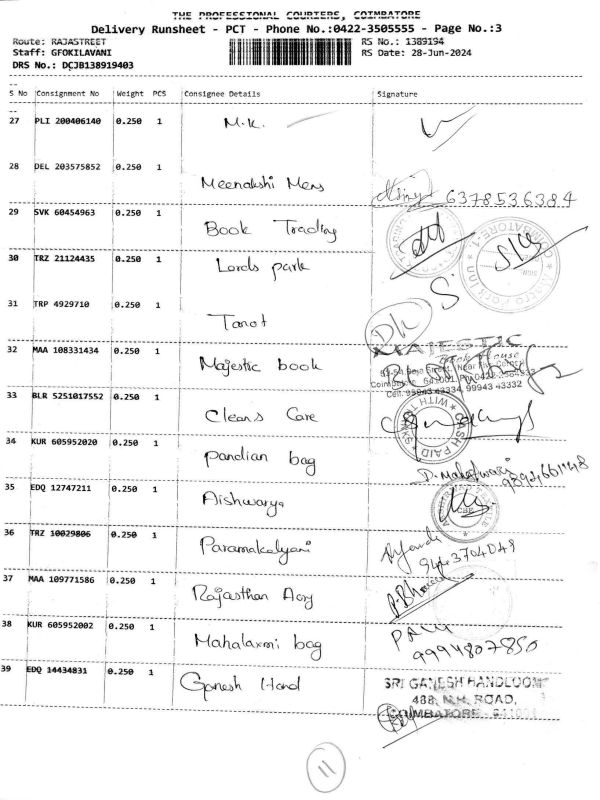 THE PROFESSIONAL COURIERS, COIMBATORE
Delivery Runsheet - PCT - Phone No.:0422-3505555 - Page No.:3
Route: RAJASTREET RS No.: 1389194
Staff: GFOKILAVANI RS Date: 28-Jun-2024
DRS No.: DCJB138919403
S No Consignment No Weight PCS Consignee Details Signature
27 PLI 200406140 0.250 1 M.K.
28 DEL 203575852 0.250 1 Meenakshi Mens 6378536384
29 SVK 60454963 0.250 1 Book Trading
30 TRZ 21124435 0.250 1 Lords park
31 TRP 4929710 0.250 1 Tarot
32 MAA 108331434 0.250 1 Majestic book
MAJESTIC
Book House
33 BLR 5251017552 0.250 1 Cleans Care
CASH PAID WITH THANKS
34 KUR 605952020 0.250 1 Pandian bag D. Maheswari
35 EDQ 12747211 0.250 1 Aishwarya
36 TRZ 10029806 0.250 1 Paramakalyani
37 MAA 109771586 0.250 1 Rajasthan
38 KUR 605952002 0.250 1 Mahalaxmi bag 9994807850
39 EDQ 14434831 0.250 1 Ganesh Hand
SRI GANESH HANDLOOM
488, N.H. ROAD,
COIMBATORE - 641001
11